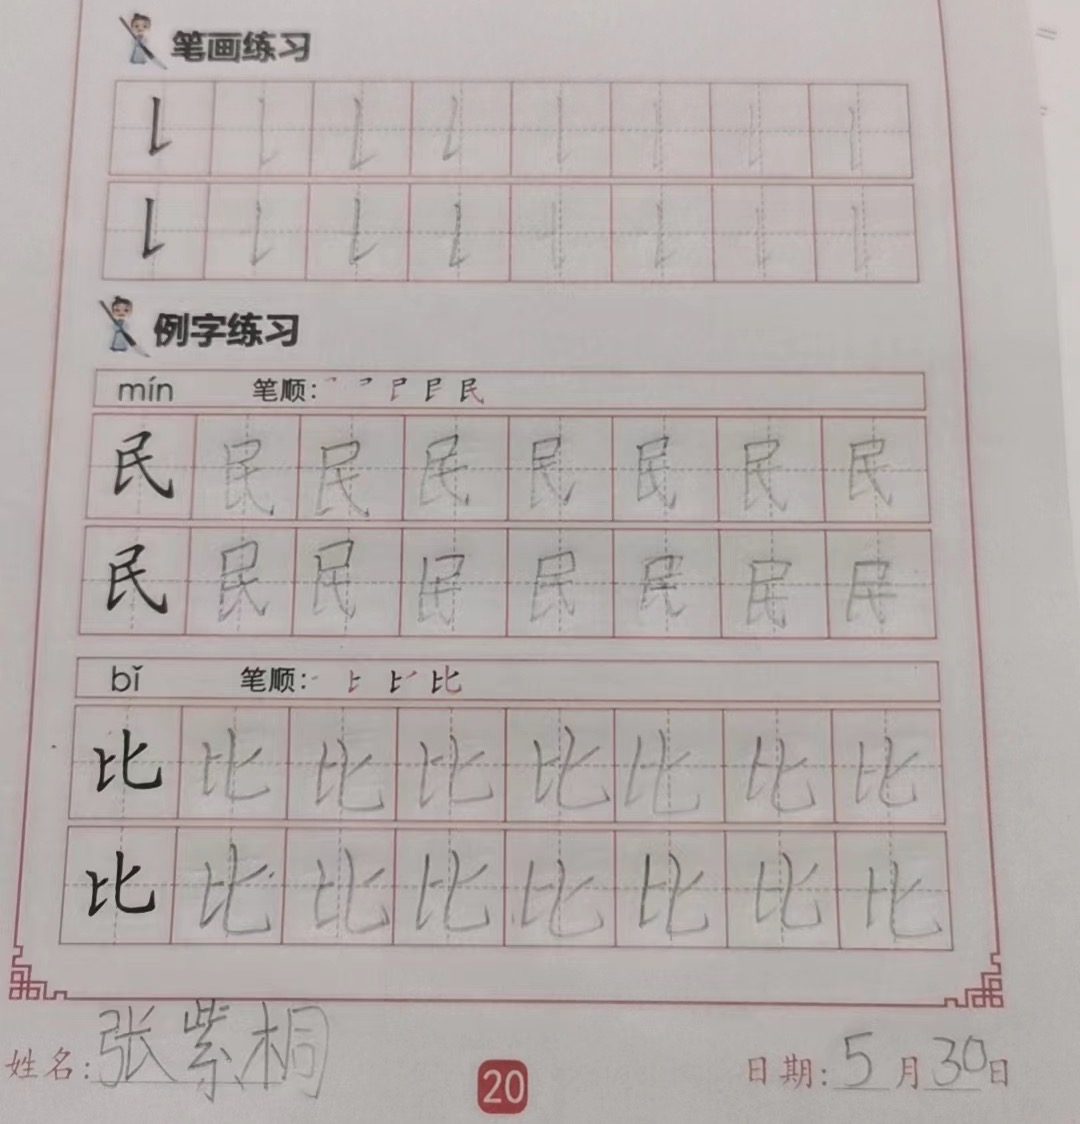 笔画练习
例字练习
mín 笔顺:
民 民 民 民 民 民 民 民
民 民 民 民 民 民 民 民
bǐ 笔顺:
比 比 比 比 比 比 比 比
比 比 比 比 比 比 比 比
姓名:张紫桐 20 日期:5月30日